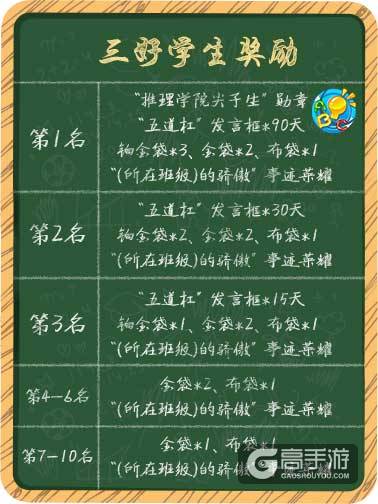 三好学生奖励
第1名
"推理学院尖子生"勋章
"五道杠"发言框*90天
铂金袋*3、金袋*2、布袋*1
"(所在班级)的骄傲"事迹荣耀
第2名
"五道杠"发言框*30天
铂金袋*2、金袋*2、布袋*1
"(所在班级)的骄傲"事迹荣耀
第3名
"五道杠"发言框*15天
铂金袋*1、金袋*2、布袋*1
"(所在班级)的骄傲"事迹荣耀
第4-6名
金袋*2、布袋*1
"(所在班级)的骄傲"事迹荣耀
第7-10名
金袋*1、布袋*1
"(所在班级)的骄傲"
ABC
高手游
GAOSHOUYOU.COM